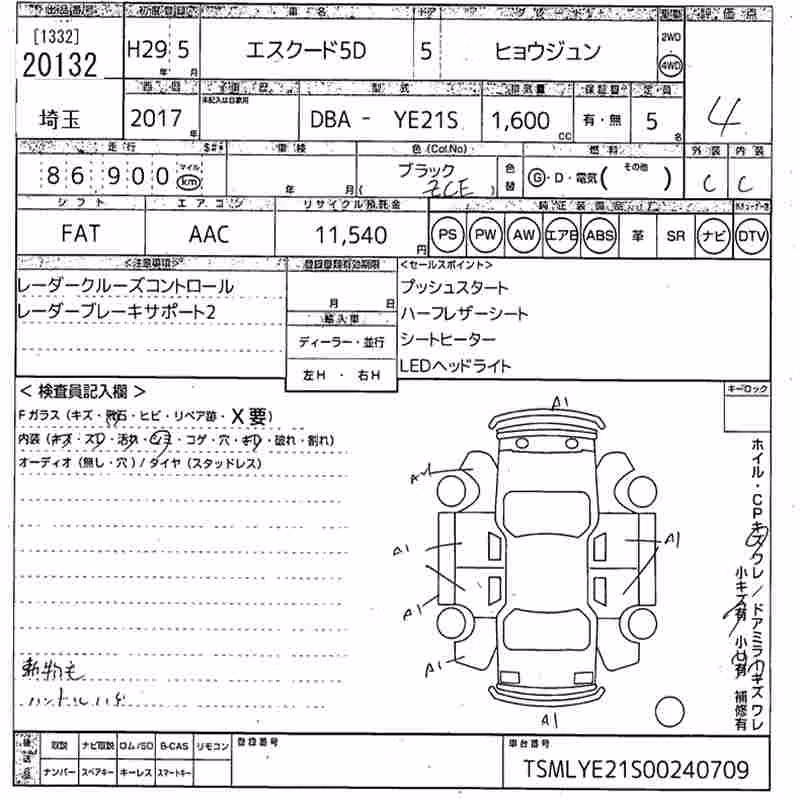 出品番号 初度登録 車名 ドア グレード 駆動 評価点
[1332]
20132 H29 5 エスクード5D 5 ヒョウジュン 2WD 4WD
年 月
西暦 車歴 型式 排気量 保証書 定員
埼玉 2017 年 未記入は自家用 DBA - YE21S 1,600 CC 有・無 5 名 4
走行 車検 色(Col.No) 燃料 外装 内装
86,900 マイル km 年 月 ブラック ( ZCE ) 色替 G・D・電気( その他 ) C C
シフト エアコン リサイクル預託金 純正装備品
FAT AAC 11,540 円 PS PW AW エアB ABS 革 SR ナビ DTV
<注意事項> 登録書類有効期限 <セールスポイント>
レーダークルーズコントロール プッシュスタート
レーダーブレーキサポート2 月 日 ハーフレザーシート
輸入車 シートヒーター
ディーラー・並行 LEDヘッドライト
左H・右H
<検査員記入欄> キーロック
Fガラス(キズ・飛石・ヒビ・リペア跡・X要)
内装(キズ・スレ・汚れ・シミ・コゲ・穴・キレ・破れ・割れ)
オーディオ(無し・穴)/タイヤ(スタッドレス)
A1
A1
A1
A1
A1
A1
ホイル・CPキズワレ/ドアミラーキズワレ
小キズ有 小凹有 補修有
ハンドルハゲ
後送品 取説 ナビ取説 ロム/SD B-CAS リモコン 登録番号 車台番号
ナンバー スペアキー キーレス スマートキー TSMLYE21S00240709